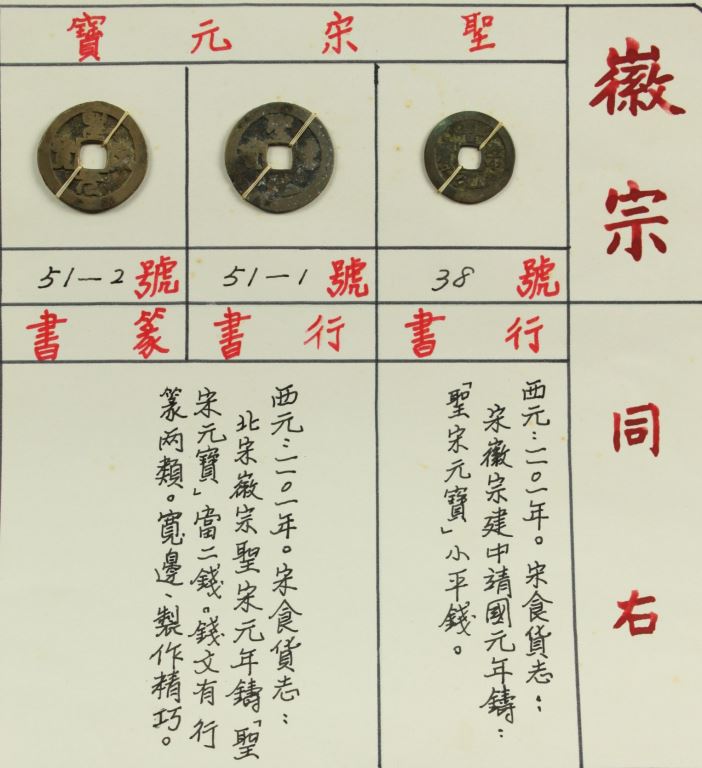 徽宗
同右
聖宋元寶
38號
51-1號
51-2號
行書
行書
篆書
西元：一一〇一年。宋食貨志：
宋徽宗建中靖國元年鑄：
「聖宋元寶」小平錢。
西元：一一〇一年。宋食貨志：
北宋徽宗聖宋元年鑄「聖
宋元寶」當二錢。錢文有行
篆兩類。寬邊、製作精巧。